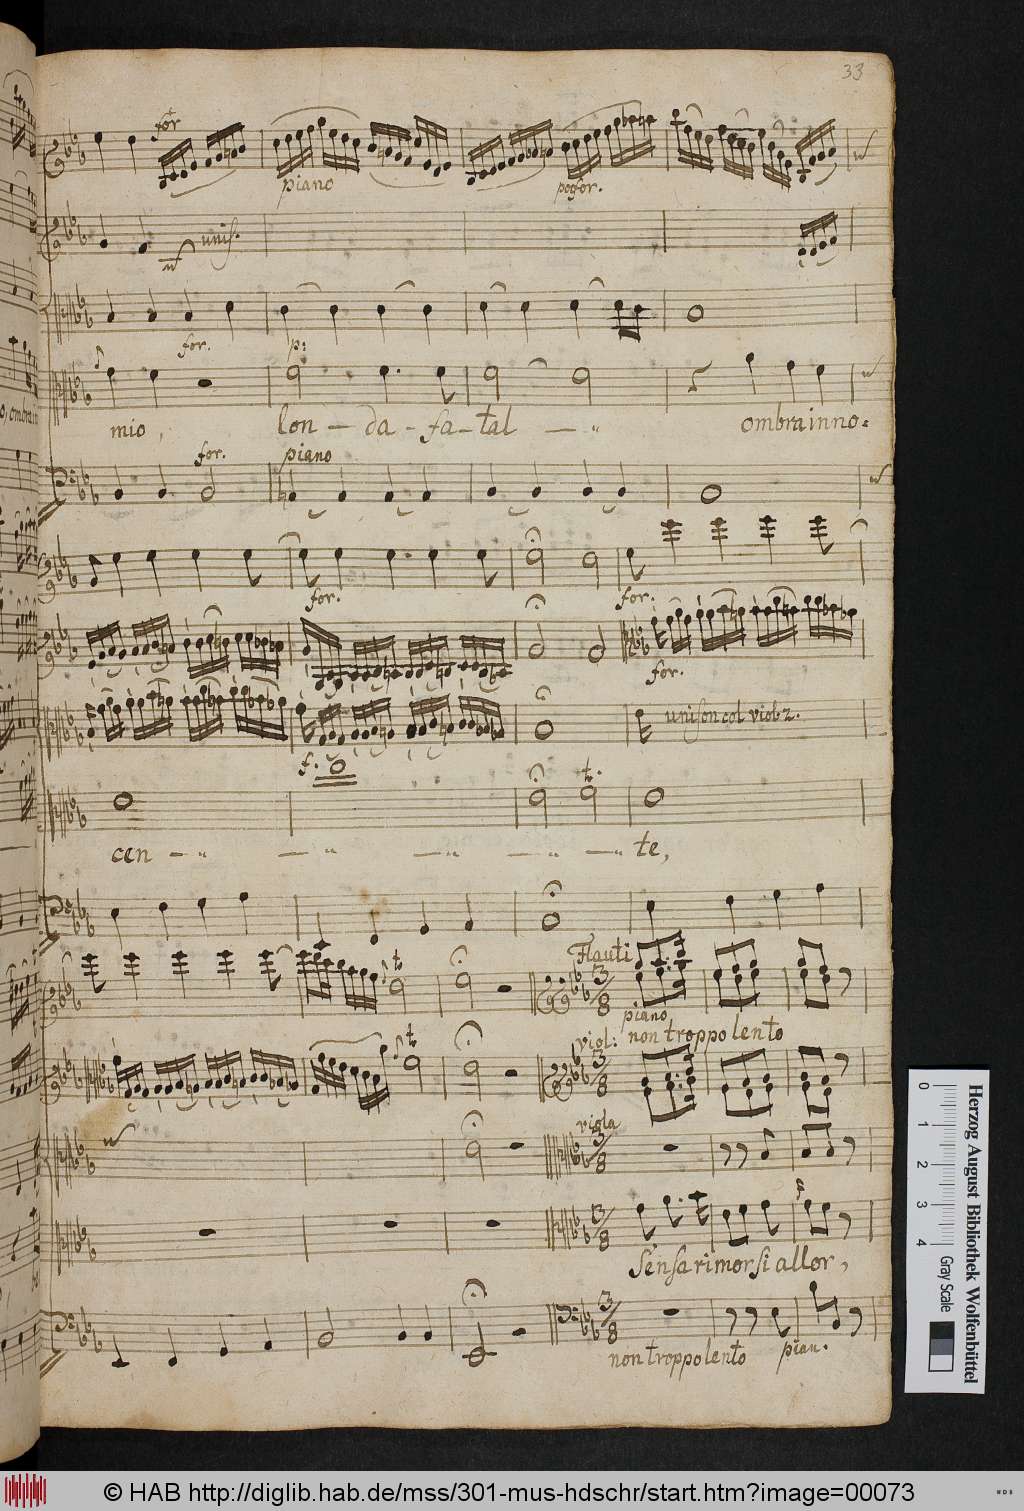 33
for
piano
poc for.
unis.
for.
p:
mio, lon - da - fa - tal - " ombra inno =
for.
piano
for.
for.
for.
unison col viol 2.
f.
t.
cen - " - " - " - " - " te,
Flauti
3/8
piano
viol: non troppo lento
3/8
viola
3/8
3/8
Sensa rimorsi allor,
3/8
non troppo lento
pian.
0 1 2 3 4
Gray Scale
Herzog August Bibliothek Wolfenbüttel
© HAB http://diglib.hab.de/mss/301-mus-hdschr/start.htm?image=00073